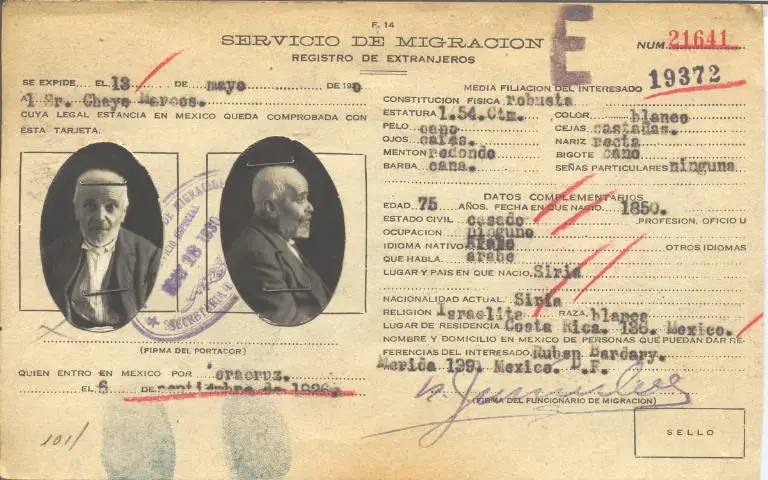 F. 14
SERVICIO DE MIGRACION
REGISTRO DE EXTRANJEROS
E
NUM. 21641
19372
SE EXPIDE EL 13 DE mayo DE 193
A l Sr. Chayo Marcos.
CUYA LEGAL ESTANCIA EN MEXICO QUEDA COMPROBADA CON
ESTA TARJETA.
SECRETARIA
(FIRMA DEL PORTADOR)
QUIEN ENTRO EN MEXICO POR eracruz.
EL 6 DE septiembre de 1926.
101/
MEDIA FILIACION DEL INTERESADO
CONSTITUCION FISICA robusta
ESTATURA 1.54.Ctm. COLOR blanco
PELO cano CEJAS castañas.
OJOS cafés. NARIZ recta
MENTON redondo BIGOTE cano
BARBA cana. SEÑAS PARTICULARES ninguna
DATOS COMPLEMENTARIOS
EDAD 75 AÑOS. FECHA EN QUE NACIO 1850.
ESTADO CIVIL casado PROFESION, OFICIO U
OCUPACION ninguno
IDIOMA NATIVO arabe OTROS IDIOMAS
QUE HABLA. arabe
LUGAR Y PAIS EN QUE NACIO, Siria
NACIONALIDAD ACTUAL. Siria
RELIGION Israelita RAZA, blanca
LUGAR DE RESIDENCIA. Costa Rica. 136. Mexico.
NOMBRE Y DOMICILIO EN MEXICO DE PERSONAS QUE PUEDAN DAR RE-
FERENCIAS DEL INTERESADO, Ruben Dardary.
Merida 139. Mexico. D.F.
(FIRMA DEL FUNCIONARIO DE MIGRACION)
SELLO